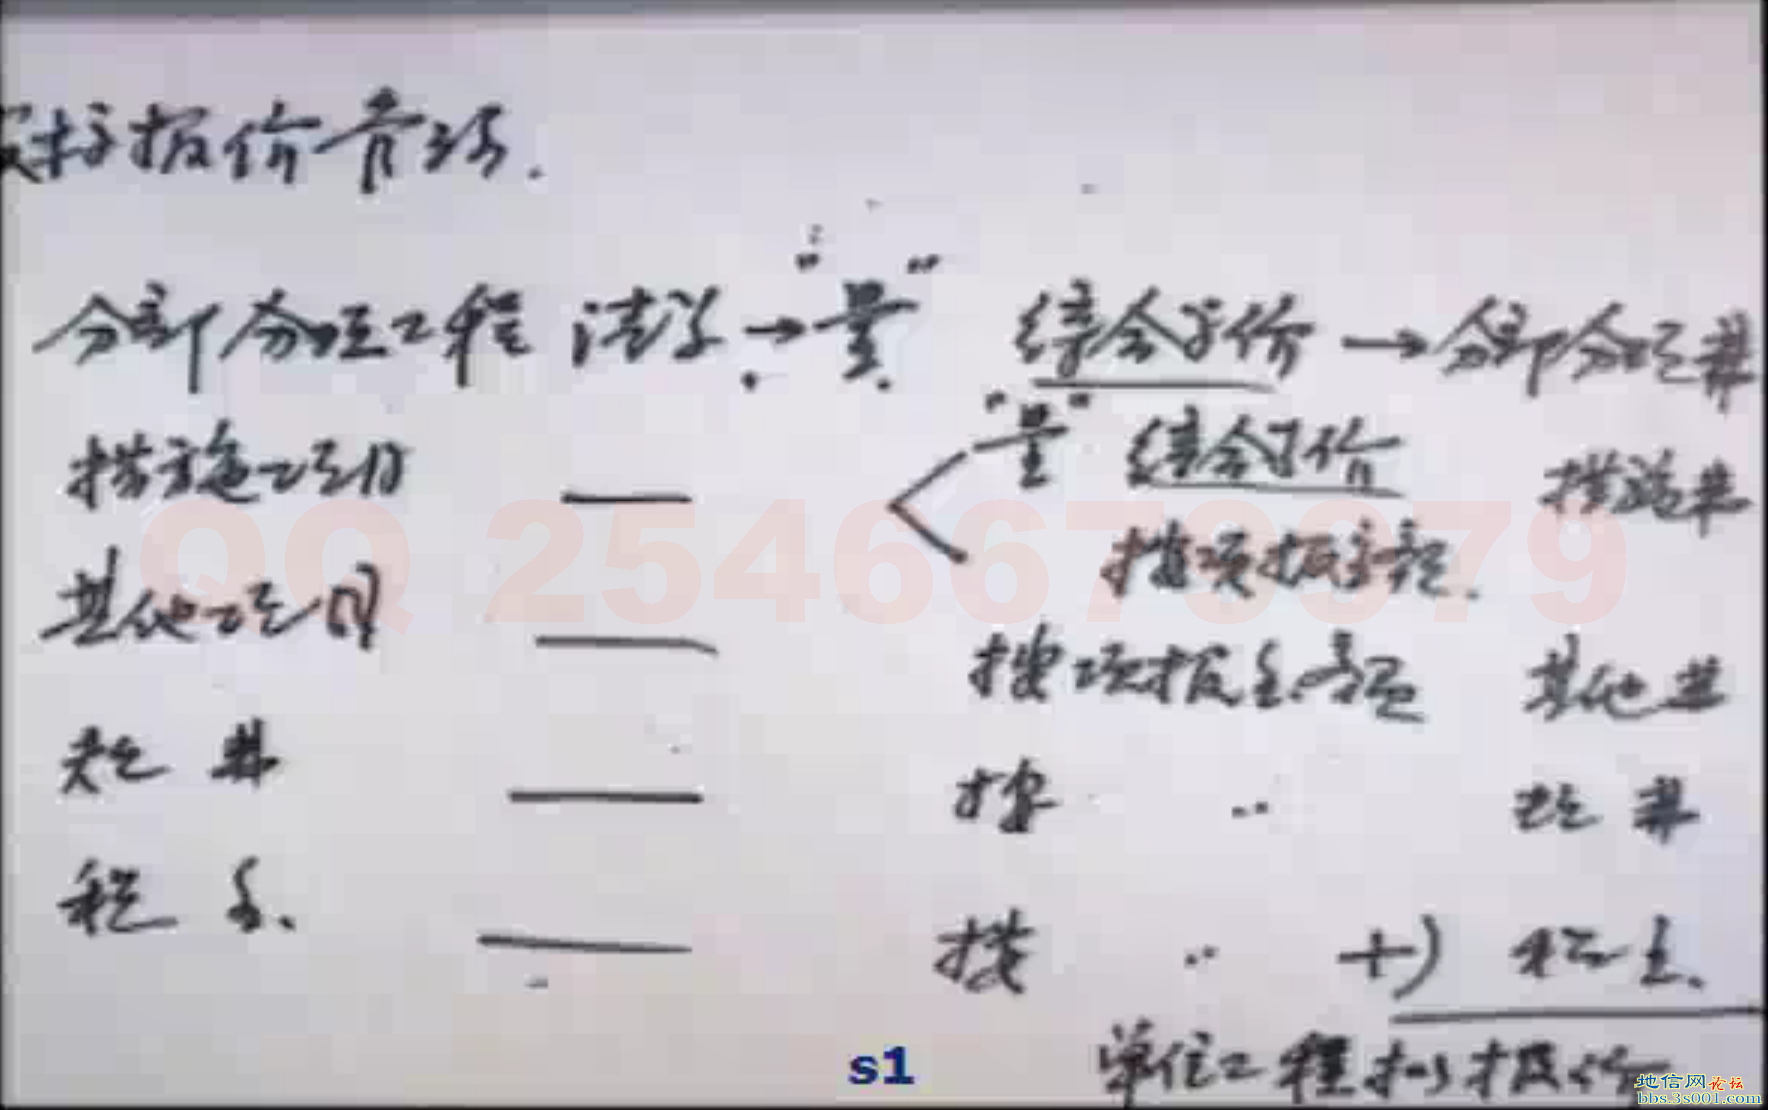 投标报价骨诀.
分部分项工程 清单→"量" 综合单价→分部分项费
措施项目 — "量" 综合单价 措施费
按项报金额.
其他项目 — 按项报金额 其他费
规 费 — 按 〃 规 费
税 金. — 按 〃 +) 税金.
单位工程投标报价
s1
QQ 2546673979
地信网论坛
bbs.3s001.com